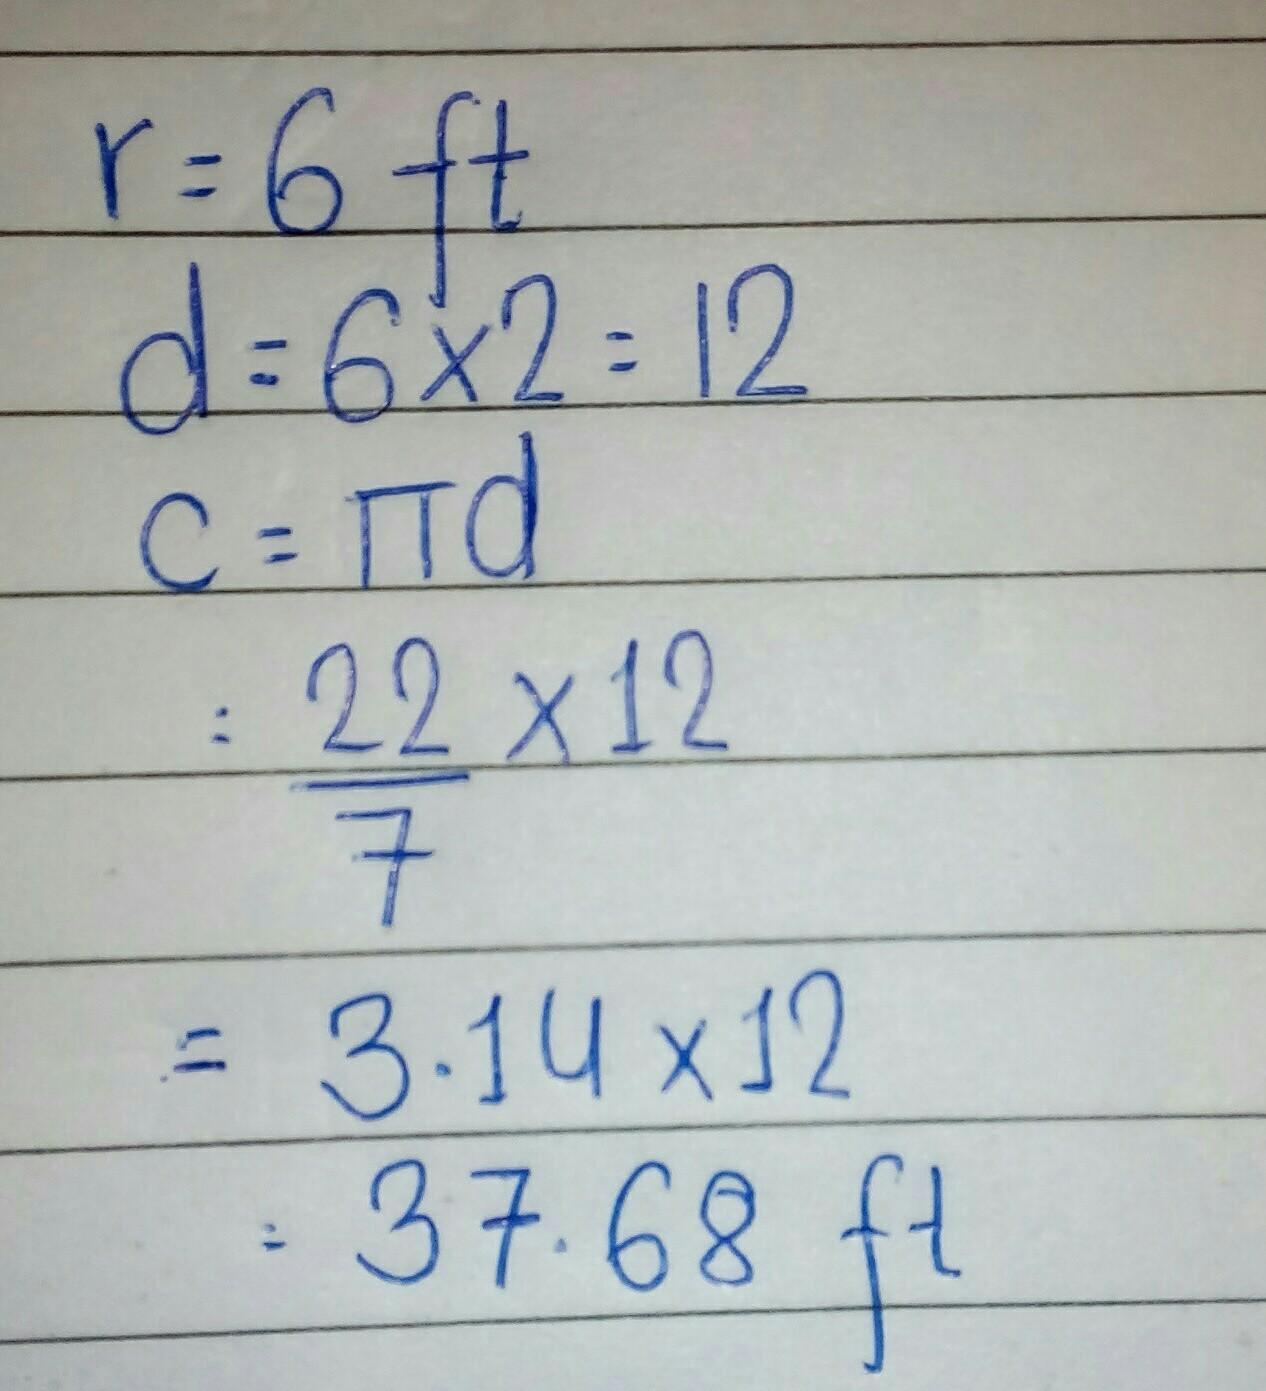 r = 6 ft
d = 6 x 2 = 12
c = πd
= 22/7 x 12
= 3.14 x 12
= 37.68 ft